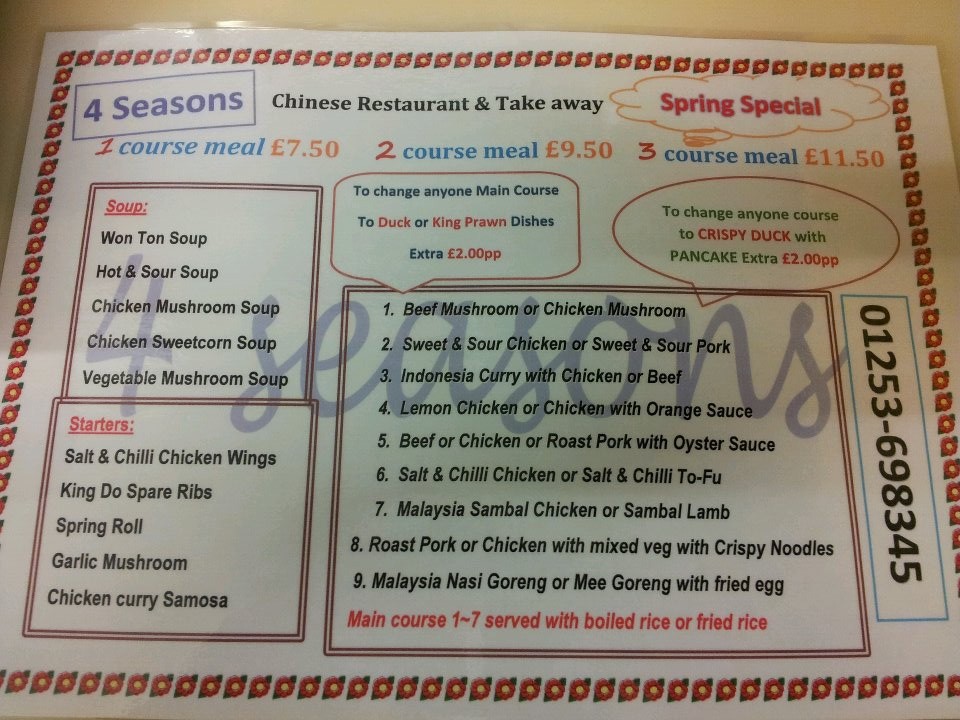 4 Seasons
Chinese Restaurant & Take away
Spring Special
1 course meal £7.50
2 course meal £9.50
3 course meal £11.50
To change anyone Main Course
To Duck or King Prawn Dishes
Extra £2.00pp
To change anyone course
to CRISPY DUCK with
PANCAKE Extra £2.00pp
Soup:
Won Ton Soup
Hot & Sour Soup
Chicken Mushroom Soup
Chicken Sweetcorn Soup
Vegetable Mushroom Soup
Starters:
Salt & Chilli Chicken Wings
King Do Spare Ribs
Spring Roll
Garlic Mushroom
Chicken curry Samosa
1. Beef Mushroom or Chicken Mushroom
2. Sweet & Sour Chicken or Sweet & Sour Pork
3. Indonesia Curry with Chicken or Beef
4. Lemon Chicken or Chicken with Orange Sauce
5. Beef or Chicken or Roast Pork with Oyster Sauce
6. Salt & Chilli Chicken or Salt & Chilli To-Fu
7. Malaysia Sambal Chicken or Sambal Lamb
8. Roast Pork or Chicken with mixed veg with Crispy Noodles
9. Malaysia Nasi Goreng or Mee Goreng with fried egg
Main course 1~7 served with boiled rice or fried rice
01253-698345
4 seasons